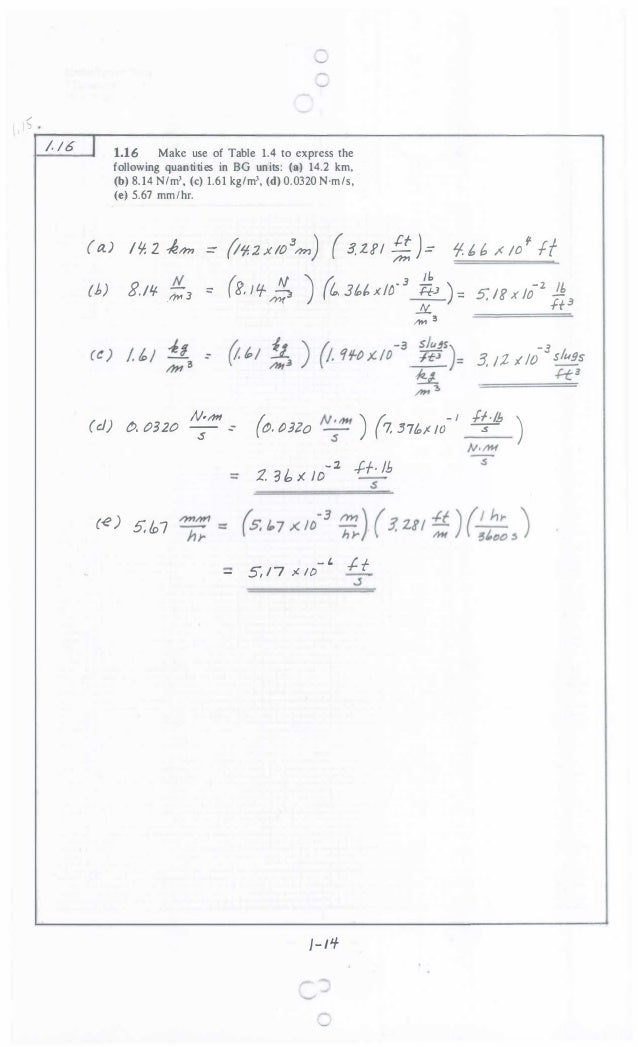 1.15.
1.16
1.16 Make use of Table 1.4 to express the
following quantities in BG units: (a) 14.2 km,
(b) 8.14 N/m³, (c) 1.61 kg/m³, (d) 0.0320 N·m/s,
(e) 5.67 mm/hr.
(a) 14.2 km = (14.2 x 10³ m) (3.281 ft/m) = 4.66 x 10⁴ ft
(b) 8.14 N/m³ = (8.14 N/m³) (6.366 x 10⁻³ lb/ft³ / N/m³) = 5.18 x 10⁻² lb/ft³
(c) 1.61 kg/m³ = (1.61 kg/m³) (1.940 x 10⁻³ slugs/ft³ / kg/m³) = 3.12 x 10⁻³ slugs/ft³
(d) 0.0320 N·m/s = (0.0320 N·m/s) (7.376 x 10⁻¹ ft·lb/s / N·m/s)
= 2.36 x 10⁻² ft·lb/s
(e) 5.67 mm/hr = (5.67 x 10⁻³ m/hr) (3.281 ft/m) (1 hr/3600 s)
= 5.17 x 10⁻⁶ ft/s
1-14